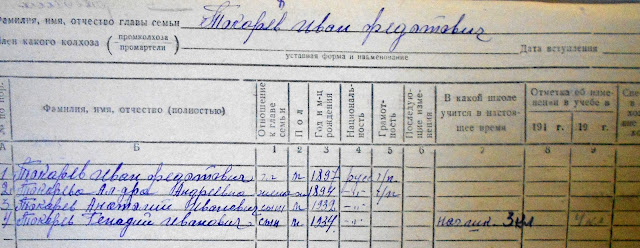 Фамилия, имя, отчество главы семьи Токарев Иван Федотович
Член какого колхоза (промколхоза промартели)
уставная форма и наименование
Дата вступления
№ по пор. Фамилия, имя, отчество (полностью) Отношение к главе семьи Пол Год и м-ц рождения Националь-ность Грамот-ность Последую-щие изме-нения В какой школе учится в настоя-щее время Отметка об изме-нении в учебе в
191 г. 19 г.
А Б 1 2 3 4 5 6 7 8 9
1 Токарев Иван Федотович м 1897 рус
2 Токарева Андреевна жена 1894 -"-
3 Токарев Анатолий Иванович сын м -"-
4 Токарев Генадий Иванович сын м 1934 -"- 3 кл 4 кл